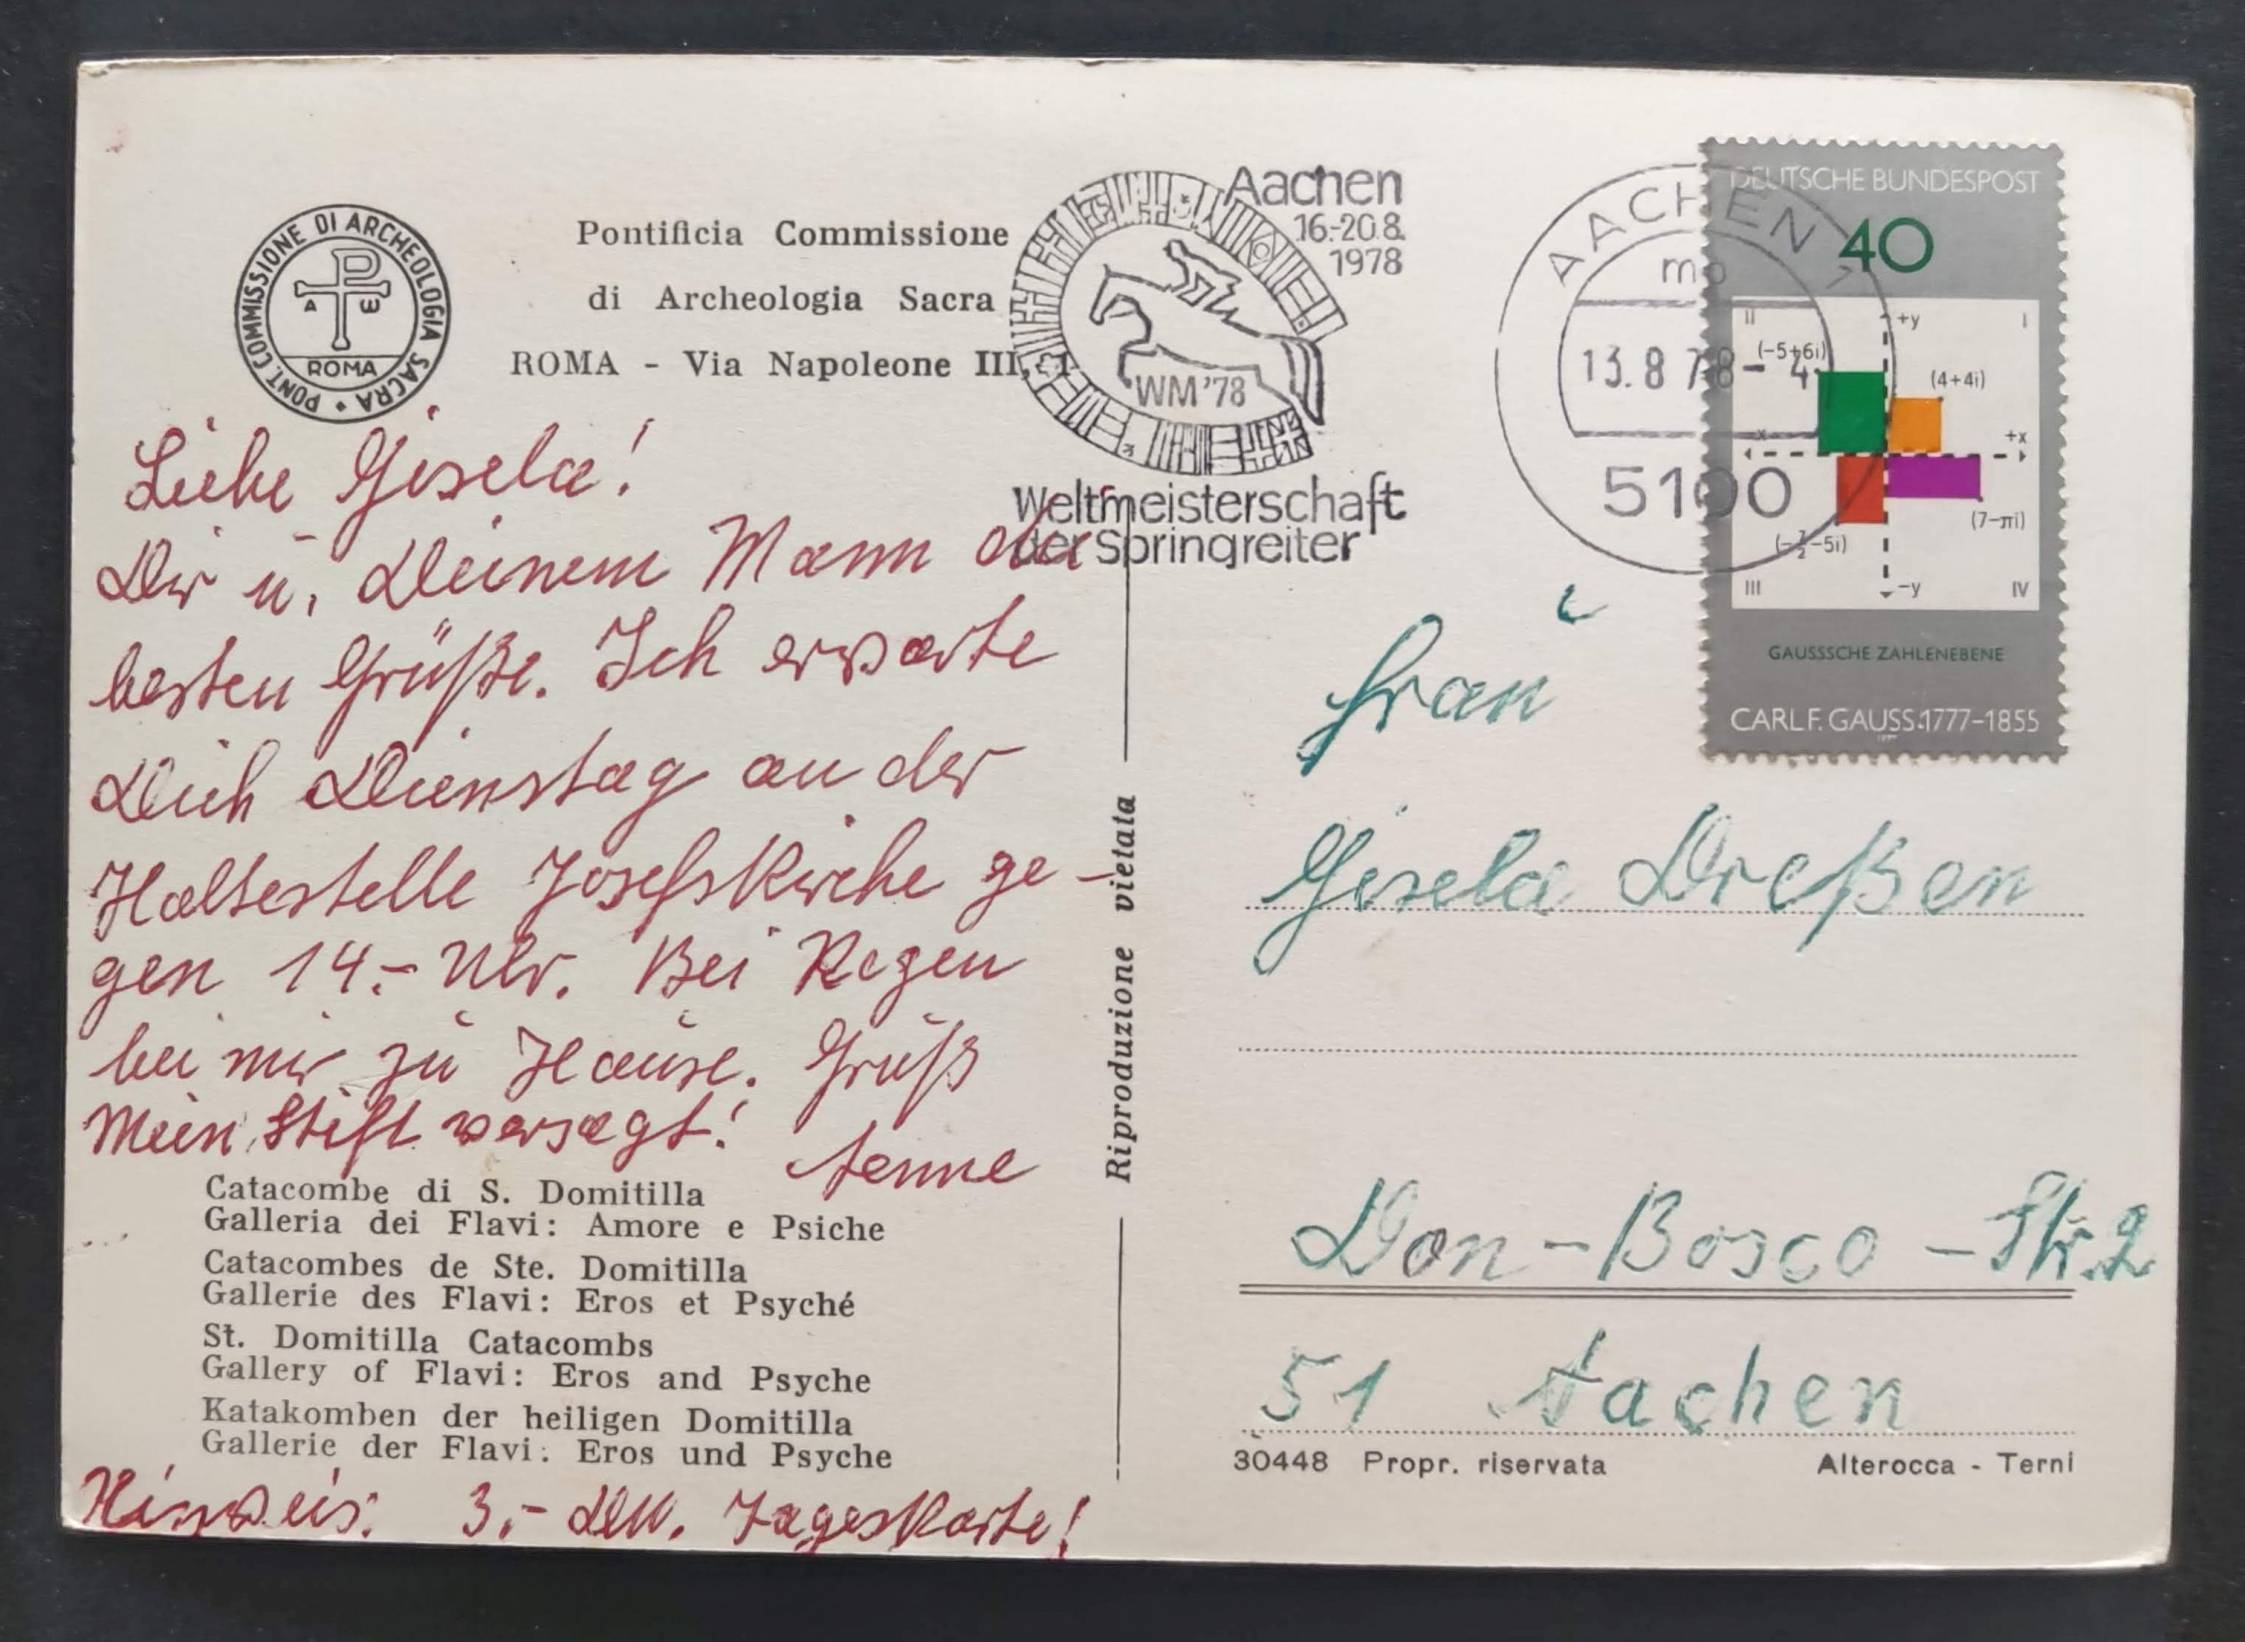 PONT. COMMISSIONE DI ARCHEOLOGIA SACRA
A ω
ROMA
Pontificia Commissione
di Archeologia Sacra
ROMA - Via Napoleone III, 1
Aachen
16.-20.8.
1978
WM '78
Weltmeisterschaft
der Springreiter
AACHEN 1
mo
13.8.78-4
5100
DEUTSCHE BUNDESPOST
40
II +y I
(-5+6i)
(4+4i)
-x +x
(7-πi)
(-7/2-5i)
III -y IV
GAUSSSCHE ZAHLENEBENE
CARL F. GAUSS 1777-1855
1977
Liebe Gisela!
Dir u. Deinem Mann die
besten Grüße. Ich erwarte
Dich Dienstag an der
Haltestelle Josefskirche ge-
gen 14.- Uhr. Bei Regen
bei mir zu Hause. Gruß
Mein Stift versagt!
Änne
Catacombe di S. Domitilla
Galleria dei Flavi: Amore e Psiche
Catacombes de Ste. Domitilla
Gallerie des Flavi: Eros et Psyché
St. Domitilla Catacombs
Gallery of Flavi: Eros and Psyche
Katakomben der heiligen Domitilla
Gallerie der Flavi: Eros und Psyche
Hinweis: 3.- DM. Tageskarte!
Riproduzione vietata
Frau
Gisela Dreßen
Don-Bosco-Str. 2
51 Aachen
30448 Propr. riservata
Alterocca - Terni